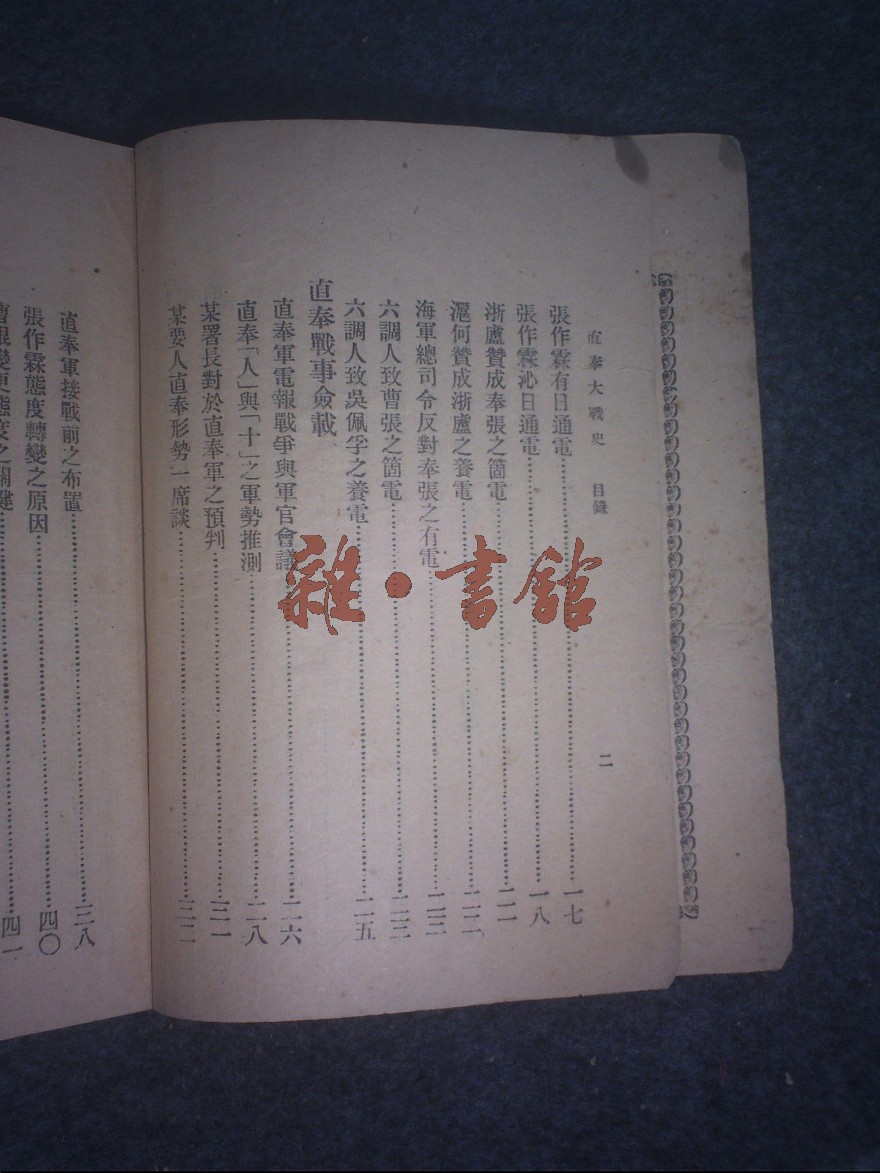 直奉大戰史　目錄　二
張作霖有日通電……一七
張作霖沁日通電……一八
浙盧贊成奉張之箇電……二一
滬何贊成浙盧之養電……二二
海軍總司令反對奉張之有電……二三
六調人致曹張之箇電……二三
六調人致吳佩孚之養電……二五
直奉戰事僉載
直奉軍電報戰爭與軍官會議……二六
直奉「人」與「十」之軍勢推測……二八
某署長對於直奉軍之預判……三一
某要人直奉形勢一席談……三二
直奉軍接戰前之布置……三八
張作霖態度轉變之原因……四〇
曹錕變更態度之關鍵……四一
雜·書館